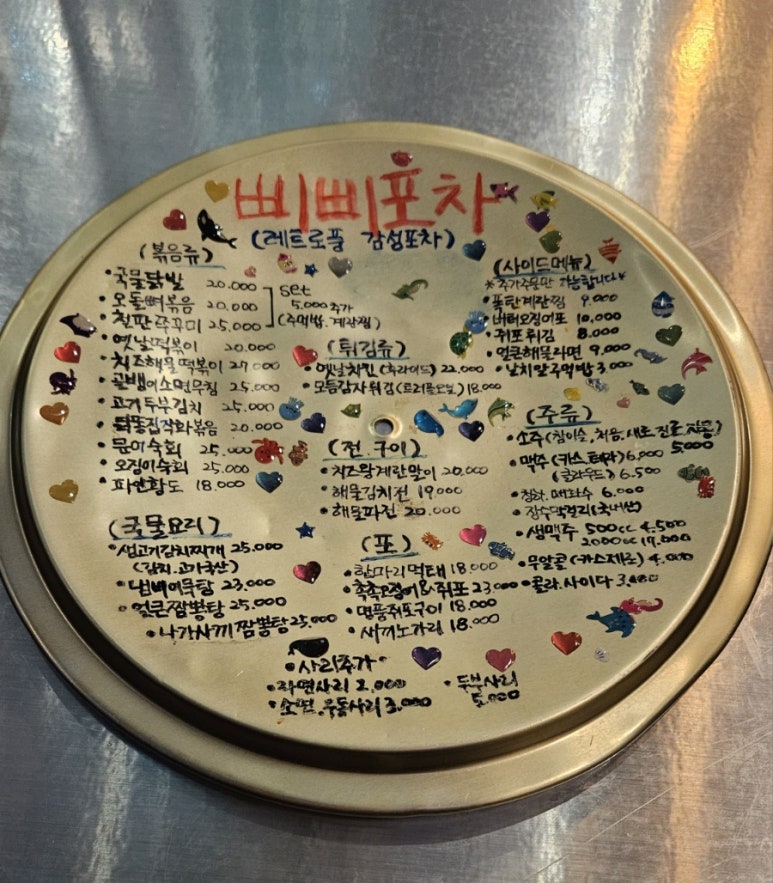 삐삐포차
(레트로풀 감성포차)
(볶음류)
• 국물닭발 20.000
• 오돌뼈볶음 20.000
• 철판쭈꾸미 25.000
set
5.000 추가
(주먹밥. 계란찜)
• 옛날떡볶이 20.000
• 치즈해물떡볶이 27.000
• 골뱅이소면무침 25.000
• 고기두부김치 25.000
• 닭똥집작화볶음 20.000
• 문어숙회 25.000
• 오징어숙회 25.000
• 파인황도 18.000
(국물요리)
• 생고기김치찌개 25.000
(김치.고기국산)
• 냄비어묵탕 23.000
• 얼큰짬뽕탕 25.000
• 나가사끼짬뽕탕 25.000
(튀김류)
• 옛날치킨(후라이드) 22.000
• 모듬감자튀김(트러플오일) 18.000
(전.구이)
• 치즈왕계란말이 20.000
• 해물김치전 19.000
• 해물파전 20.000
(포)
• 황따리먹태 18.000
• 촉촉오징어&쥐포 23.000
• 명품쥐포구이 18.000
• 새끼노가리 18.000
(사이드메뉴)
*추가주문만 가능합니다*
• 폭탄계란찜 9.000
• 버터오징어포 10.000
• 쥐포튀김 8.000
• 얼큰해물라면 9.000
• 날치알주먹밥 3.000
(주류)
• 소주(참이슬.처음.새로.진로) 5.000
• 맥주(카스.테라) 6.000
(클라우드) 6.500
• 청하.매화수 6.000
• 장수막걸리(국내산)
• 생맥주 500cc 4.500
2000cc
• 무알콜(카스제로) 4.000
• 콜라.사이다 3.000
• 사리추가 •
• 라면사리 2.000
• 소면.우동사리 3.000
• 두부사리
5.000